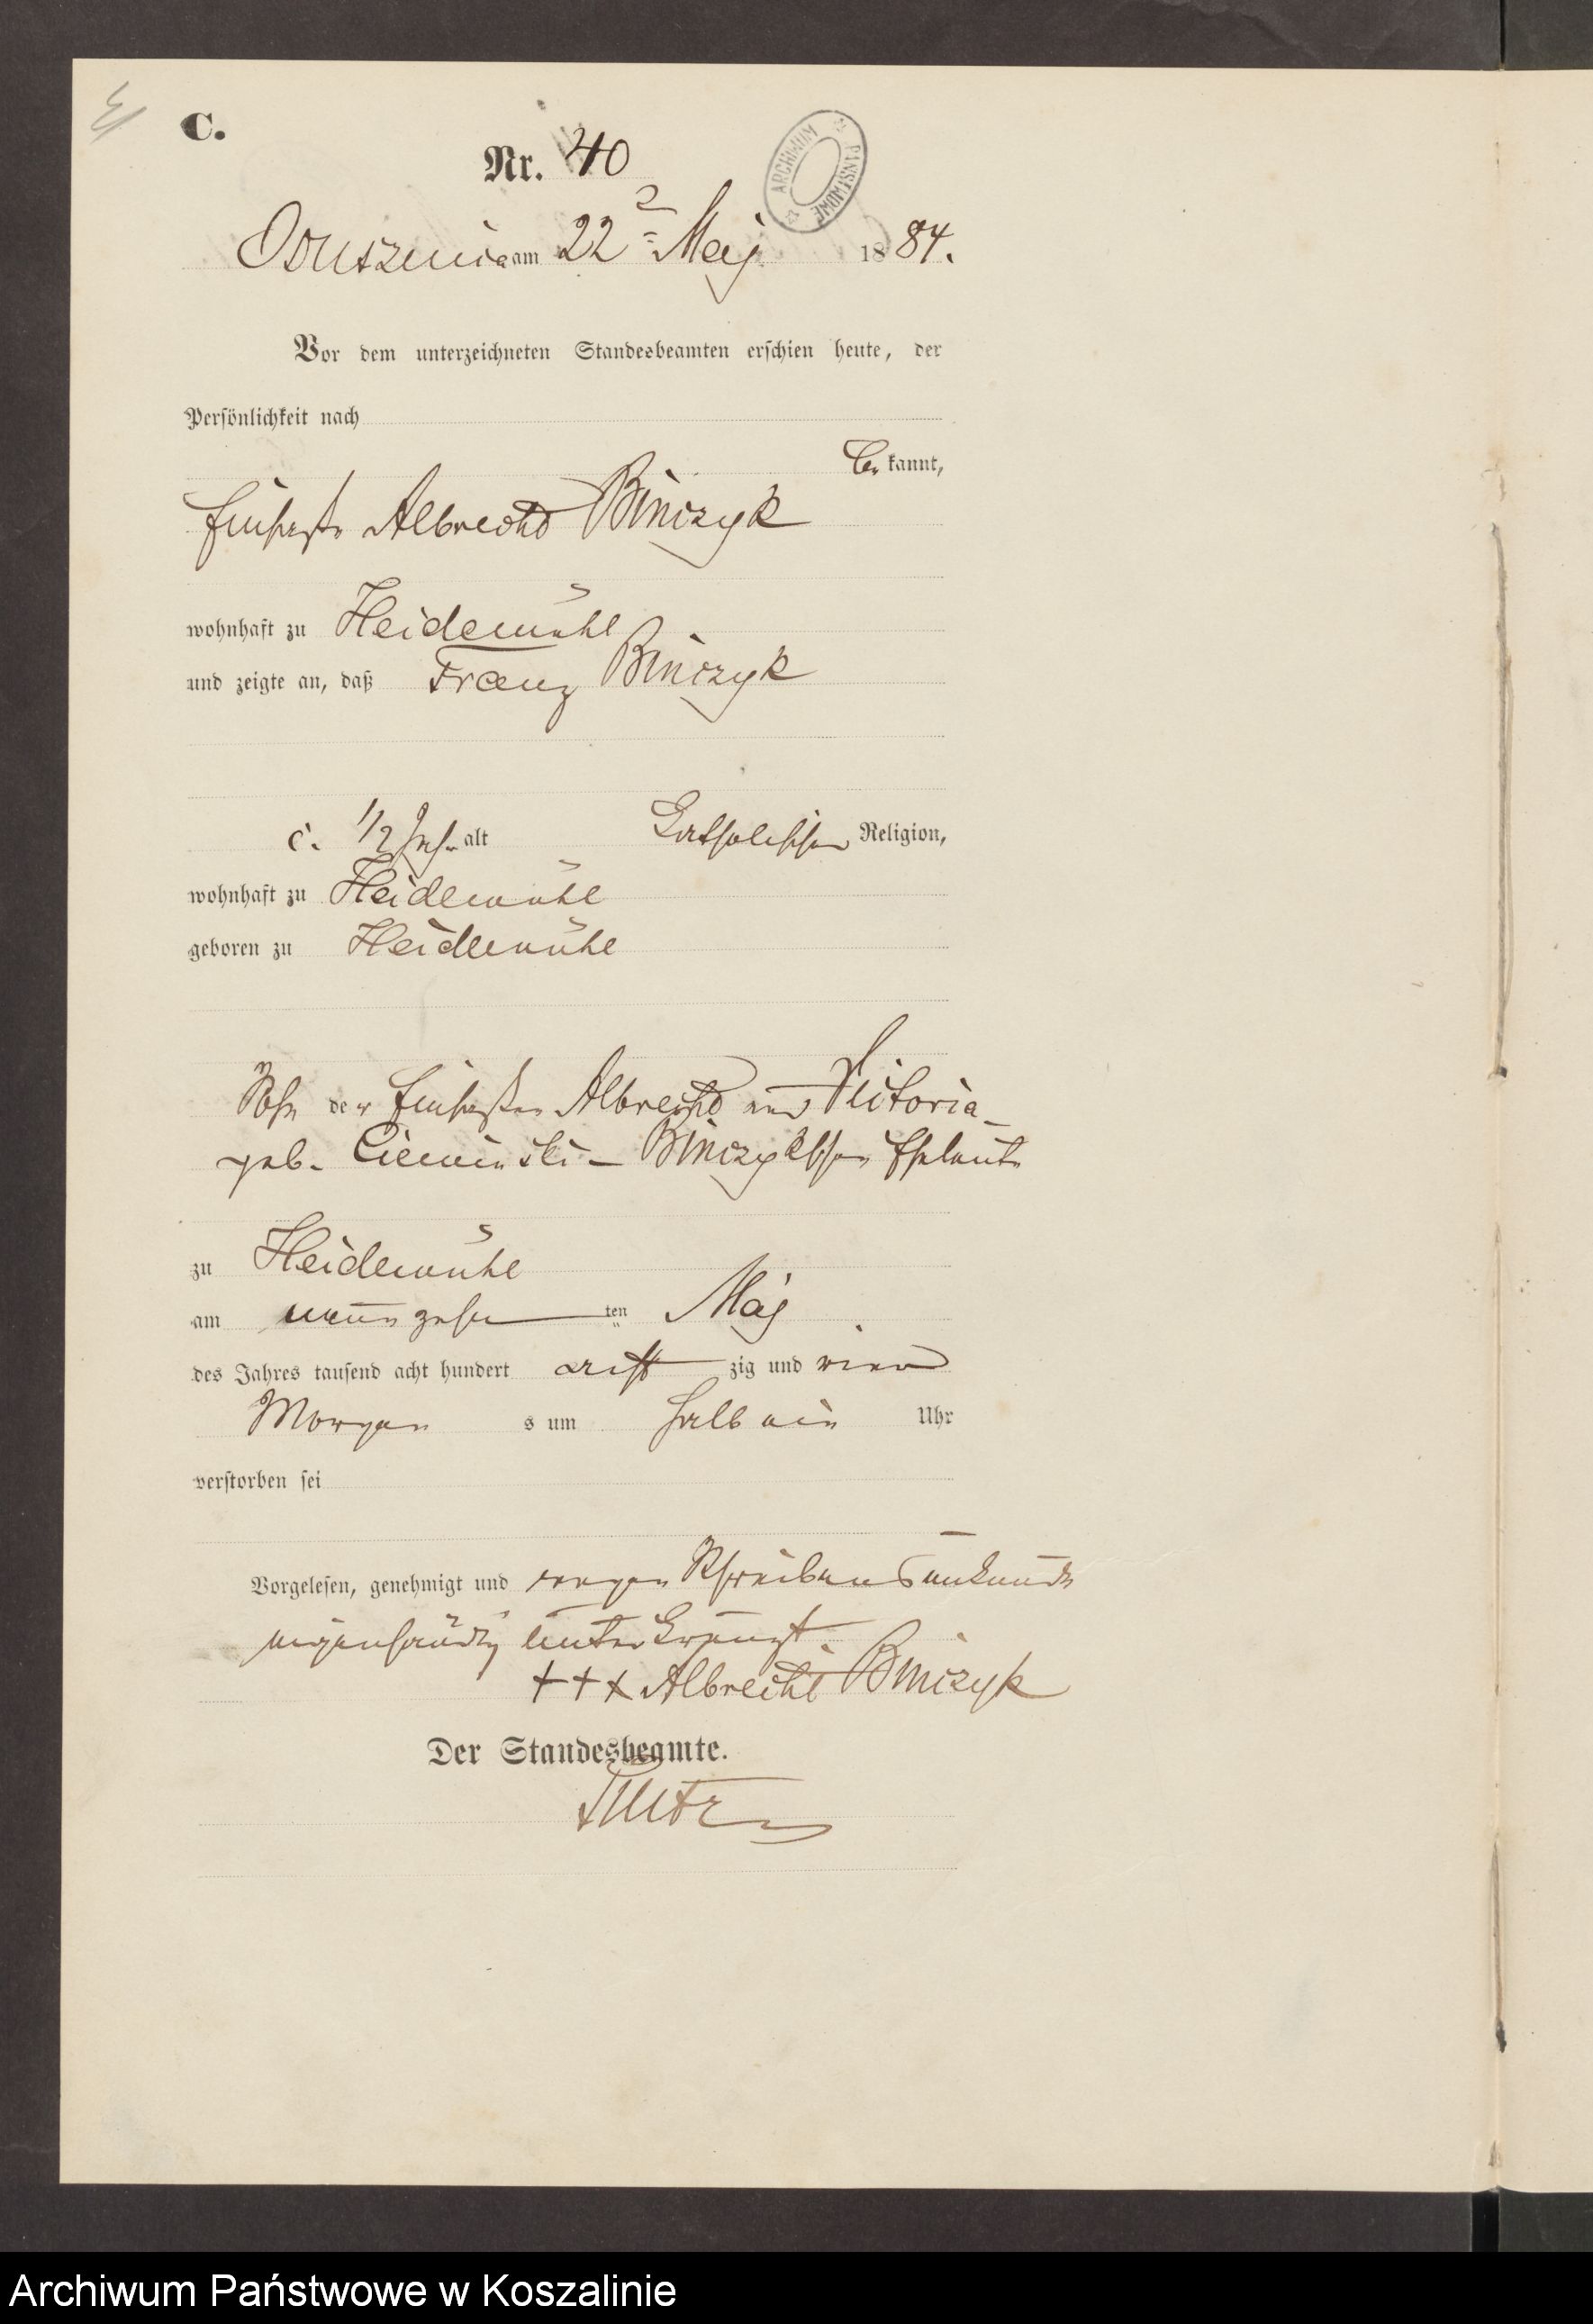 C.
Nr. 40
ARCHIWUM PAŃSTWOWE
Osusznica am 22 = Mai 1884.
Vor dem unterzeichneten Standesbeamten erschien heute, der
Persönlichkeit nach
be kannt,
Albrecht Binczyk
wohnhaft zu Heidemühl
und zeigte an, daß Franz Binczyk
c. 1/2 Jahr alt katholischer Religion,
wohnhaft zu Heidemühl
geboren zu Heidemühl
Sohn der Albrecht und Victoria
geb. Cieminski - Binczykschen Eheleute
zu Heidemühl
am neunzehn ten Mai
des Jahres tausend acht hundert acht zig und vier
Morgen s um halb ein Uhr
verstorben sei
Vorgelesen, genehmigt und wegen Schreibensunkunde
eigenhändig unterkreuzt
+++ Albrecht Binczyk
Der Standesbeamte.
Archiwum Państwowe w Koszalinie